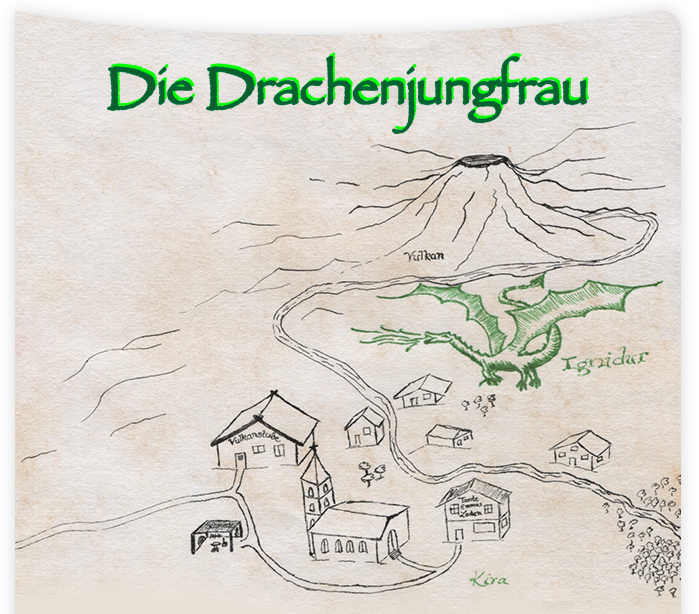 Die Drachenjungfrau
Vulkan
Ignidur
Vulkanstube
Tante
Emma
Laden
Kira